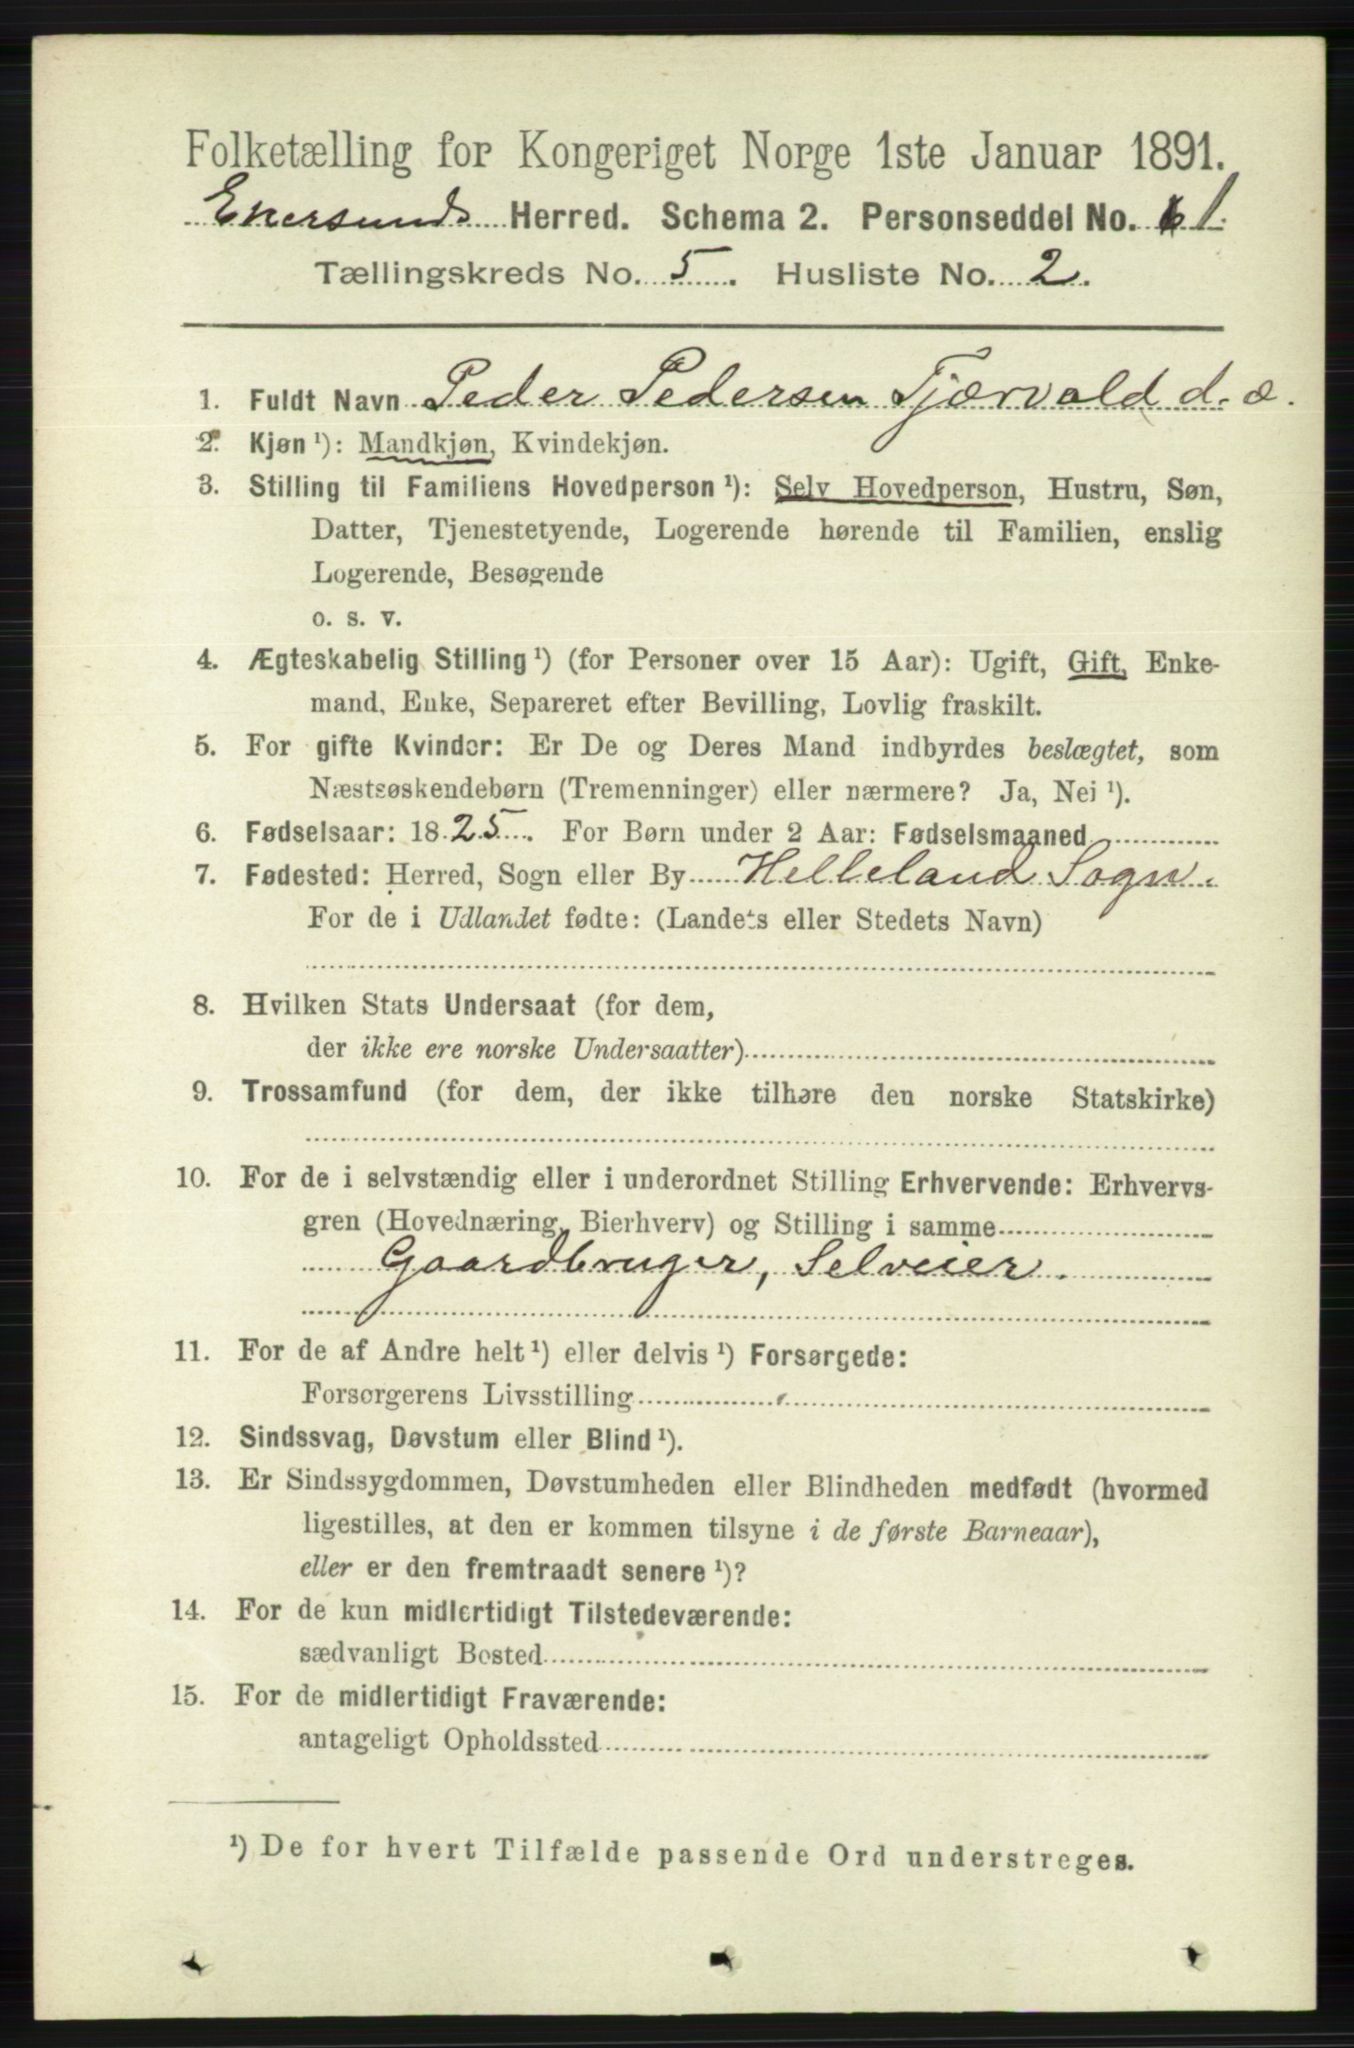 Folketælling for Kongeriget Norge 1ste Januar 1891.
Ekersunds Herred. Schema 2. Personseddel No. 1.
Tællingskreds No. 5. Husliste No. 2.
1. Fuldt Navn Peder Pedersen Tjærvold d. æ.
2. Kjøn ¹): Mandkjøn, Kvindekjøn.
3. Stilling til Familiens Hovedperson ¹): Selv Hovedperson, Hustru, Søn,
Datter, Tjenestetyende, Logerende hørende til Familien, enslig
Logerende, Besøgende
o. s. v.
4. Ægteskabelig Stilling ¹) (for Personer over 15 Aar): Ugift, Gift, Enke-
mand, Enke, Separeret efter Bevilling, Lovlig fraskilt.
5. For gifte Kvinder: Er De og Deres Mand indbyrdes beslægtet, som
Næstsøskendebørn (Tremenninger) eller nærmere? Ja, Nei ¹).
6. Fødselsaar: 1825. For Børn under 2 Aar: Fødselsmaaned
7. Fødested: Herred, Sogn eller By Helleland Sogn.
For de i Udlandet fødte: (Landets eller Stedets Navn)
8. Hvilken Stats Undersaat (for dem,
der ikke ere norske Undersaatter)
9. Trossamfund (for dem, der ikke tilhøre den norske Statskirke)
10. For de i selvstændig eller i underordnet Stilling Erhvervende: Erhvervs-
gren (Hovednæring, Bierhverv) og Stilling i samme
Gaardbruger, Selveier.
11. For de af Andre helt ¹) eller delvis ¹) Forsørgede:
Forsørgerens Livsstilling
12. Sindssvag, Døvstum eller Blind ¹).
13. Er Sindssygdommen, Døvstumheden eller Blindheden medfødt (hvormed
ligestilles, at den er kommen tilsyne i de første Barneaar),
eller er den fremtraadt senere ¹)?
14. For de kun midlertidigt Tilstedeværende:
sædvanligt Bosted
15. For de midlertidigt Fraværende:
antageligt Opholdssted
¹) De for hvert Tilfælde passende Ord understreges.